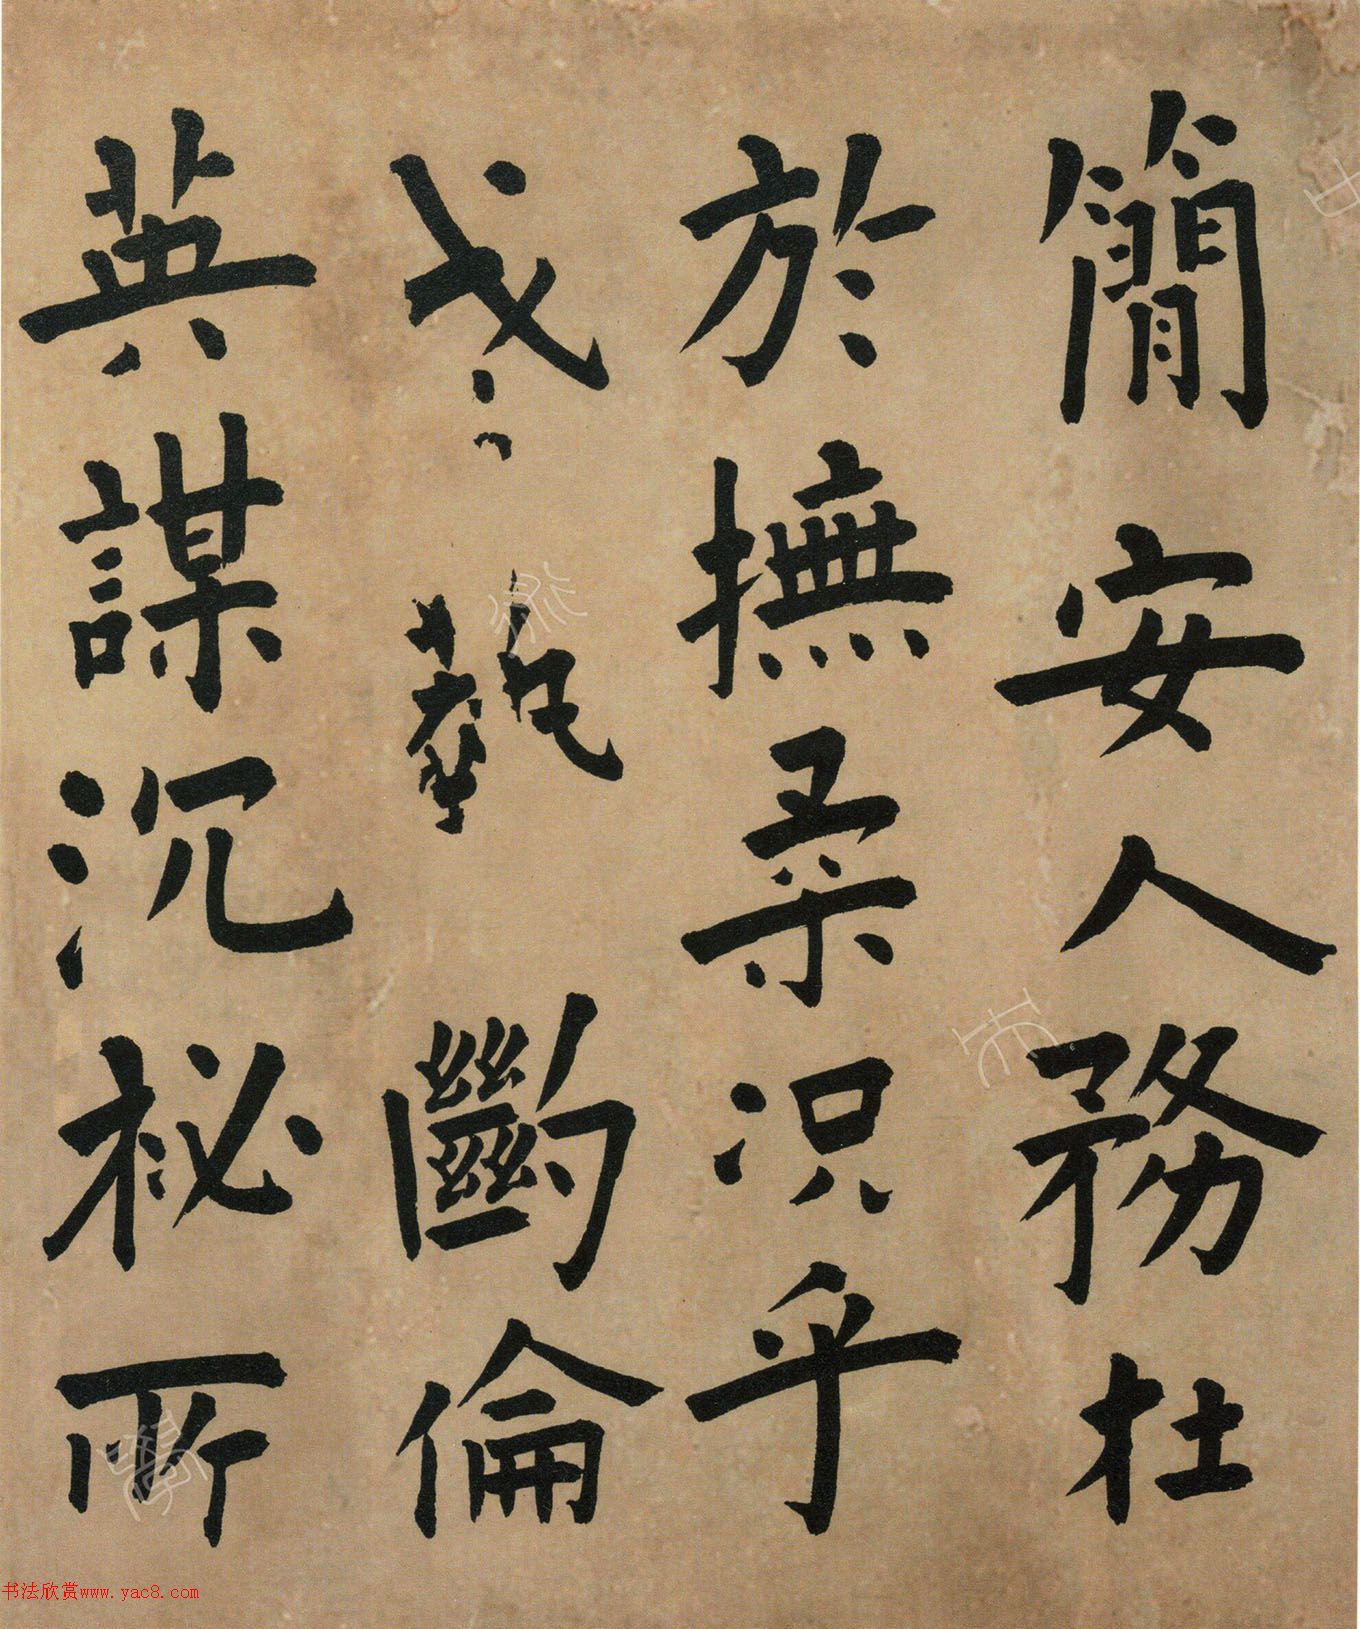 簡安人務杜
於撫柔況乎
藝斷倫
英謀沉秘所
书法欣赏www.yac8.com